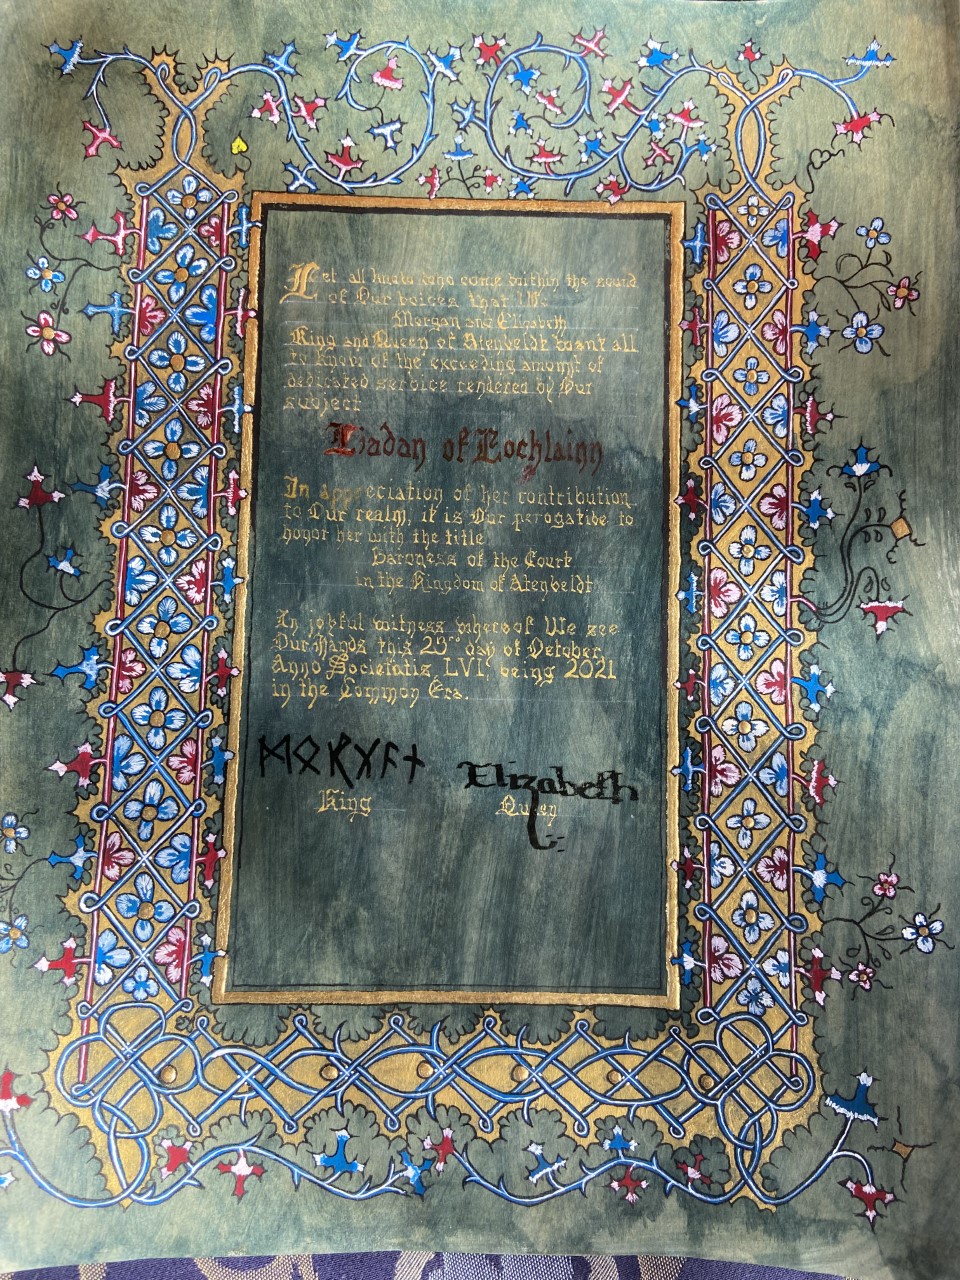 Let all know who come within the sound
of Our voices that We
Morgan and Elizabeth
King and Queen of Atenveldt want all
to know of the exceeding amount of
dedicated service rendered by Our
subject
Liadan of Lochlainn
In appreciation of her contribution
to Our realm, it is Our perogative to
honor her with the title
Baroness of the Court
in the Kingdom of Atenveldt
In joyful witness whereof We see
Our Hands this 23rd day of October,
Anno Societatis LVI being 2021
in the Common Era.
ᛗᛟᚱᚷᚨᚾ Elizabeth
King Queen